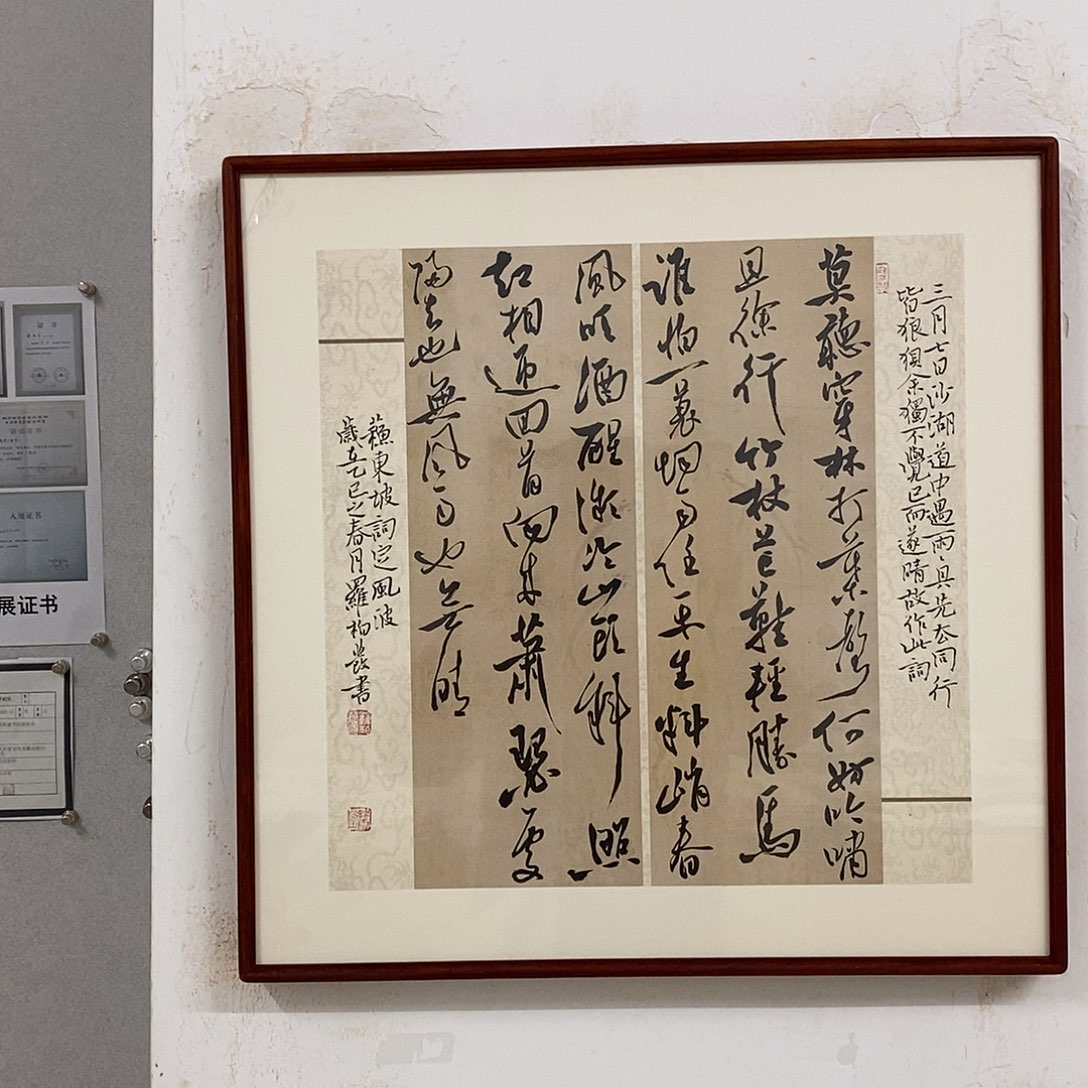 三月七日沙湖道中遇雨〻具先去同行
皆狼狽余獨不覺已而遂晴故作此詞
莫聽穿林打葉聲何妨吟嘯
且徐行竹杖芒鞋輕勝馬
誰怕一蓑烟雨任平生料峭春
風吹酒醒微冷山頭斜照
却相迎回首向來蕭瑟處
歸去也無風雨也無晴
蘓東坡詞定風波
歲在乙巳之春月羅書
入展证书
展证书